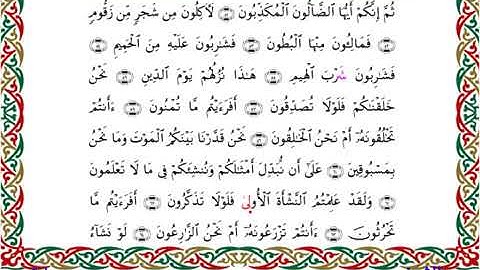 ثُمَّ إِنَّكُمْ أَيُّهَا ٱلضَّآلُّونَ ٱلْمُكَذِّبُونَ لَأٓكِلُونَ مِن شَجَرٍ مِّن زَقُّومٍ
فَمَالِـُٔونَ مِنْهَا ٱلْبُطُونَ فَشَٰرِبُونَ عَلَيْهِ مِنَ ٱلْحَمِيمِ
فَشَٰرِبُونَ شَرْبَ ٱلْهِيمِ هَٰذَا نُزُلُهُمْ يَوْمَ ٱلدِّينِ نَحْنُ
خَلَقْنَٰكُمْ فَلَوْلَا تُصَدِّقُونَ أَفَرَءَيْتُم مَّا تُمْنُونَ ءَأَنتُمْ
تَخْلُقُونَهُۥٓ أَمْ نَحْنُ ٱلْخَٰلِقُونَ نَحْنُ قَدَّرْنَا بَيْنَكُمُ ٱلْمَوْتَ وَمَا نَحْنُ
بِمَسْبُوقِينَ عَلَىٰٓ أَن نُّبَدِّلَ أَمْثَٰلَكُمْ وَنُنشِئَكُمْ فِى مَا لَا تَعْلَمُونَ
وَلَقَدْ عَلِمْتُمُ ٱلنَّشْأَةَ ٱلْأُولَىٰ فَلَوْلَا تَذَكَّرُونَ أَفَرَءَيْتُم مَّا
تَحْرُثُونَ ءَأَنتُمْ تَزْرَعُونَهُۥٓ أَمْ نَحْنُ ٱلزَّٰرِعُونَ لَوْ نَشَآءُ